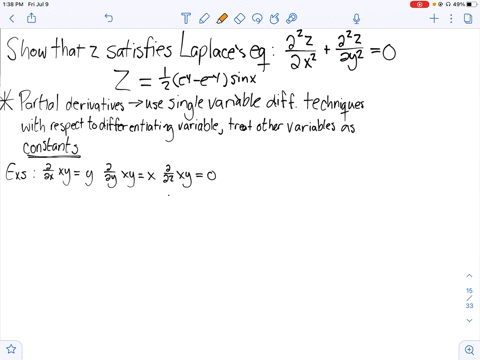 1:38 PM Fri Jul 9
49%
Show that z satisfies Laplace's eq: ∂²z/∂x² + ∂²z/∂y² = 0
z = 1/2 (e^y - e^-y) sinx
* Partial derivatives → use single variable diff. techniques
with respect to differentiating variable, treat other variables as
constants
Exs: ∂/∂x xy = y ∂/∂y xy = x ∂/∂z xy = 0
15
/
33